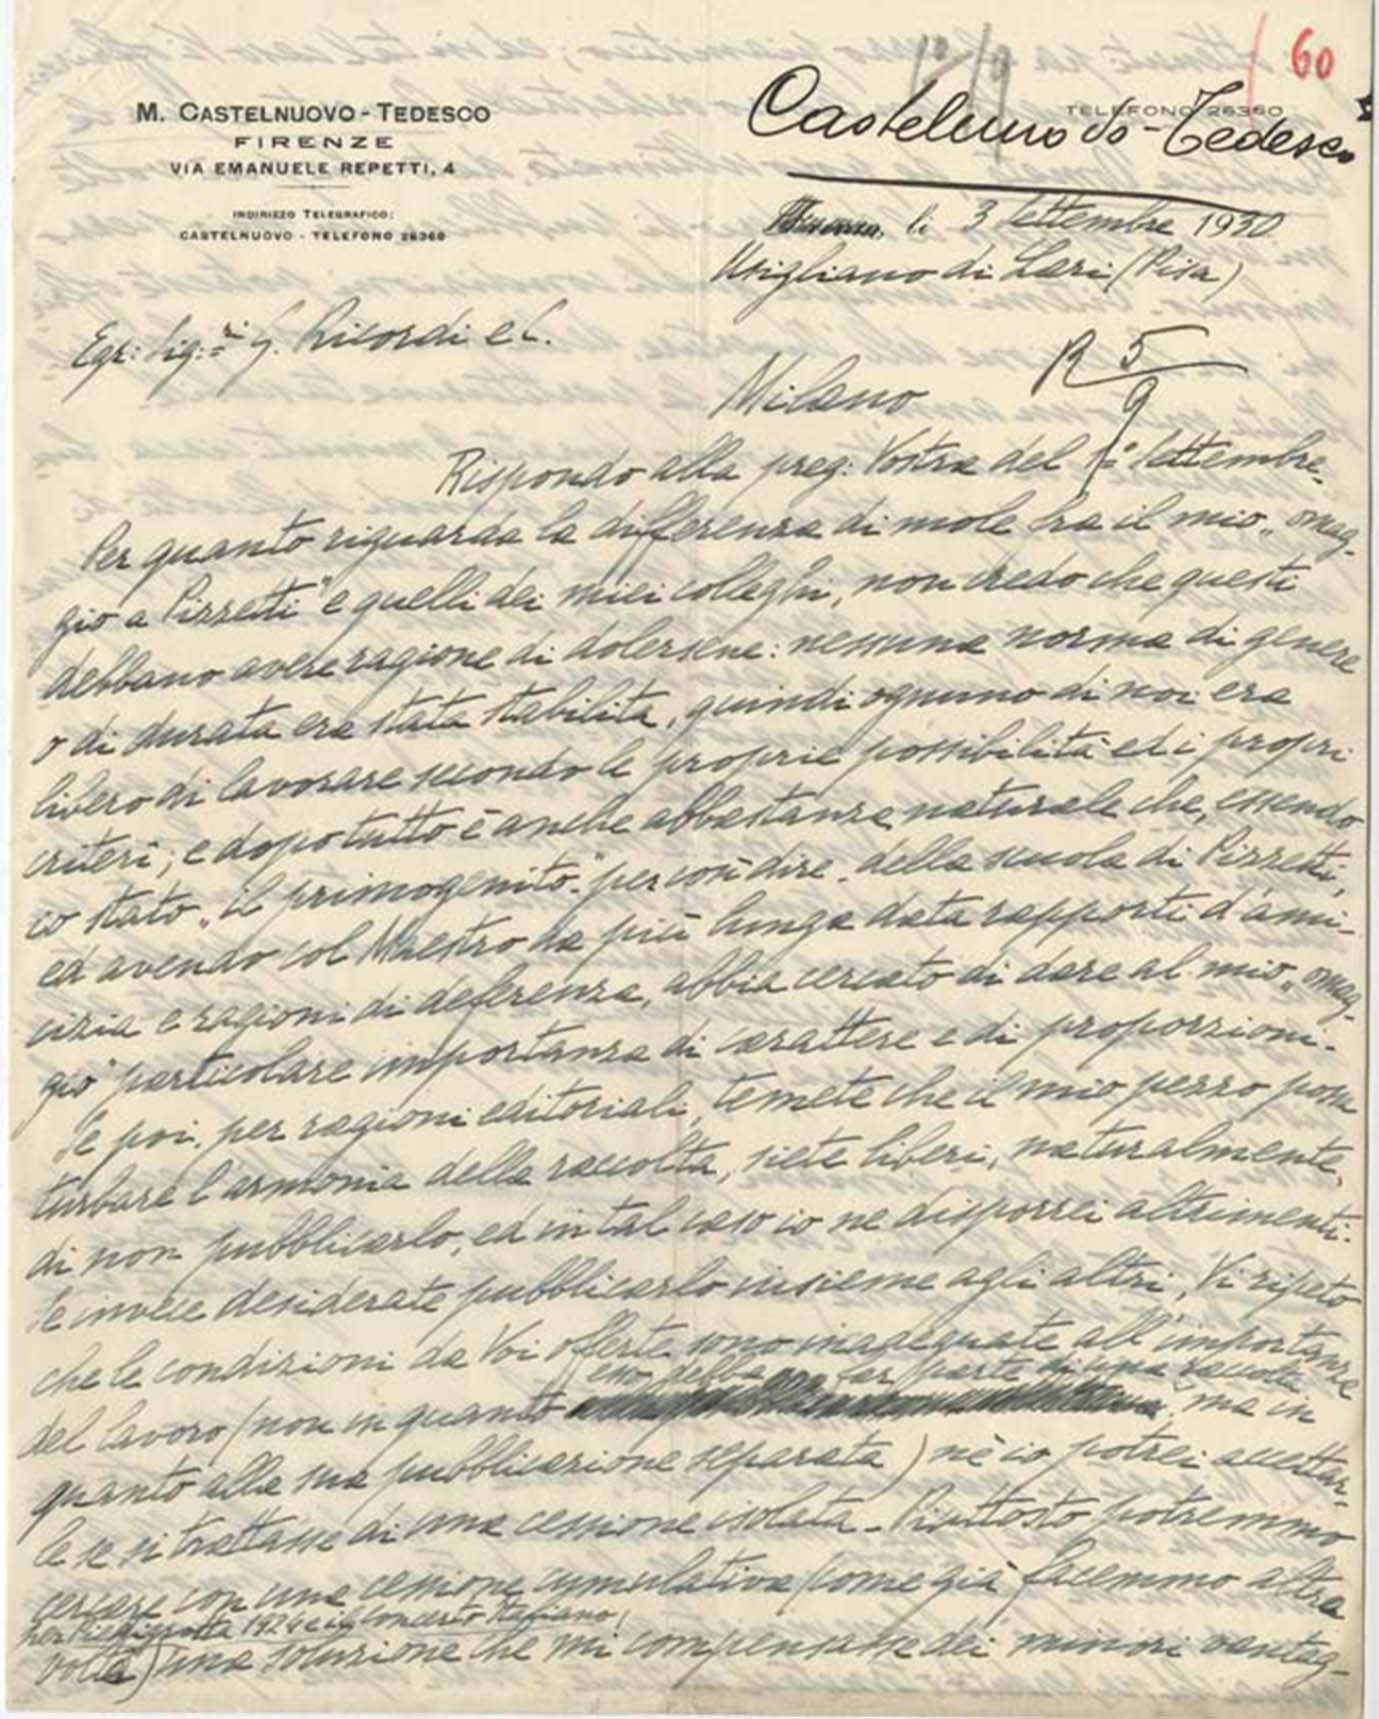 60
10/9
M. CASTELNUOVO - TEDESCO
FIRENZE
VIA EMANUELE REPETTI, 4
INDIRIZZO TELEGRAFICO:
CASTELNUOVO - TELEFONO 26360
TELEFONO 26360
Castelnuovo-Tedesco
li 3 Settembre 1930
Usigliano di Lari (Pisa)
Egr: Sig:ri G. Ricordi e C.
R 5/9
Milano
Rispondo alla preg: Vostra del 1° Settembre.
Per quanto riguarda la differenza di mole fra il mio „omag-
gio a Pizzetti" e quelli dei miei colleghi, non credo che questi
debbano avere ragione di dolersene: nessuna norma di genere
o di durata era stata stabilita, quindi ognuno di noi era
libero di lavorare secondo le proprie possibilità ed i propri
criteri; e dopo tutto è anche abbastanza naturale che, essendo
io stato „il primogenito" per così dire della scuola di Pizzetti,
ed avendo col Maestro da più lunga data rapporti d'ami-
cizia e ragioni di deferenza, abbia cercato di dare al mio „omag-
gio" particolare importanza di carattere e di proporzioni.
Se poi, per ragioni editoriali, temete che il mio pezzo possa
turbare l'armonia della raccolta, siete liberi, naturalmente,
di non pubblicarlo, ed in tal caso io ne disporrei altrimenti.
Se invece desiderate pubblicarlo insieme agli altri, Vi ripeto
che le condizioni da Voi offerte sono inadeguate all'importanza
esso debba far parte di una raccolta
del lavoro (non in quanto ma in
quanto alla sua pubblicazione separata) nè io potrei accettar-
le se si trattasse di una cessione isolata. Piuttosto potremmo
cercare con una cessione cumulativa (come già facemmo altra
per Piedigrotta 1924 e il Concerto Italiano,
volta) una soluzione che mi compensasse dei minori vantag-